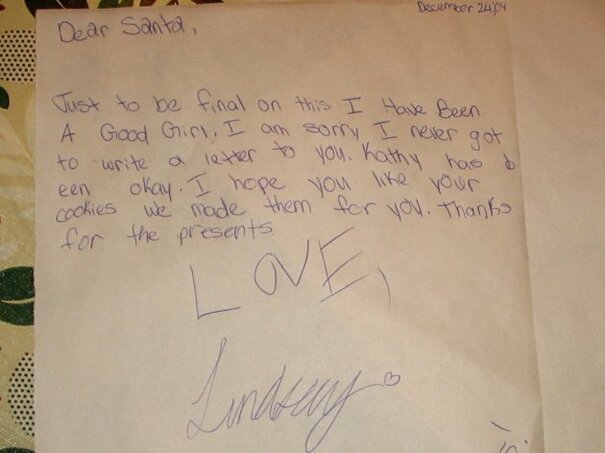 December 24/04
Dear Santa,
Just to be final on this I Have Been
A Good Girl. I am sorry I never got
to write a letter to you. Kathy has b
een okay. I hope you like your
cookies we made them for you. Thanks
for the presents
LOVE,
Lindsay